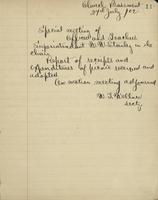 Church Basement 21
27th July 102
Special meeting of
Officers and Teachers
Superintendent W. W. Stanley in the
chair
Report of receipts and
expenditures of picnic received and
adopted
On motion meeting adjourned
W. J.
Secty